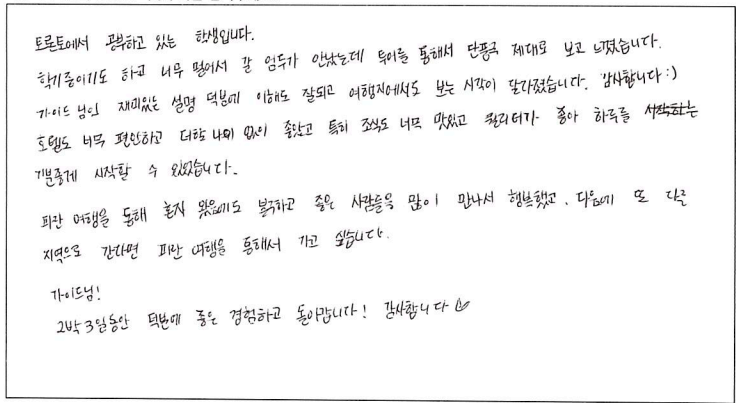 토론토에서 공부하고 있는 학생입니다.
학기중이기도 하고 너무 멀어서 갈 엄두가 안났는데 투어를 통해서 단풍국 제대로 보고 느꼈습니다.
가이드 님의 재미있는 설명 덕분에 이해도 잘되고 여행지에서도 보는 시각이 달라졌습니다. 감사합니다:)
호텔도 너무 편안하고 더할 나위 없이 좋았고 특히 조식도 너무 맛있고 퀄리티가 좋아 하루를 시작하는
기분좋게 시작할 수 있었습니다.
파란 여행을 통해 혼자 왔음에도 불구하고 좋은 사람들을 많이 만나서 행복했고, 다음에 또 다른
지역으로 간다면 파란 여행을 통해서 가고 싶습니다.
가이드님!
2박3일동안 덕분에 좋은 경험하고 돌아갑니다! 감사합니다